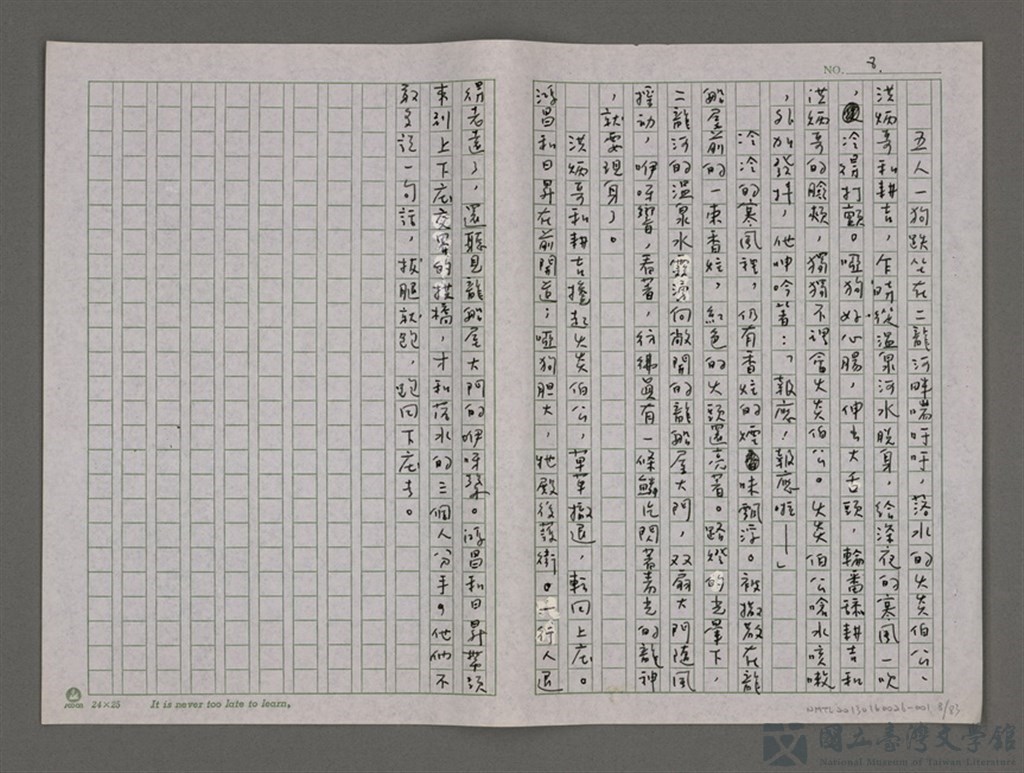 NO. 8.
五人一狗跌坐在二龍河畔喘吁吁，落水的火炎伯公、
洪炳哥和耕吉，乍時從溫泉河水脫身，給深夜的寒風一吹
，冷得打顫。啞狗好心腸，伸出大舌頭，輪番舔耕吉和
洪炳哥的臉頰，獨獨不理會火炎伯公。火炎伯公嗆水咳嗽
，外加發抖，他呻吟著：「報應！報應啦——」
冷冷的寒風裡，仍有香炷的煙味飄浮。被撒散在龍
船屋前的一束香炷，紅色的火頭還亮著。路燈的光暈下，
二龍河的溫泉水靈湧向敞開的龍船屋大門，双扇大門隨風
搖動，咿呀響，看著，彷彿真有一條鱗片閃著青光的龍神
，就要現身了。
洪炳哥和耕吉攙起火炎伯公，草草撤退，転回上庄。
鴻昌和日昇在前開道；啞狗胆大，牠殿後護衛。一行人退
得老遠了，還聽見龍船屋大門的咿呀聲。鴻昌和日昇帶頭
來到上下庄交界的拱橋，才和落水的三個人分手。他們不
敢多說一句話，拔腿就跑，跑回下庄去。
24×25 It is never too late to learn.
NMTL20130160026-001 8/83
國立臺灣文學館
National Museum of Taiwan Literature